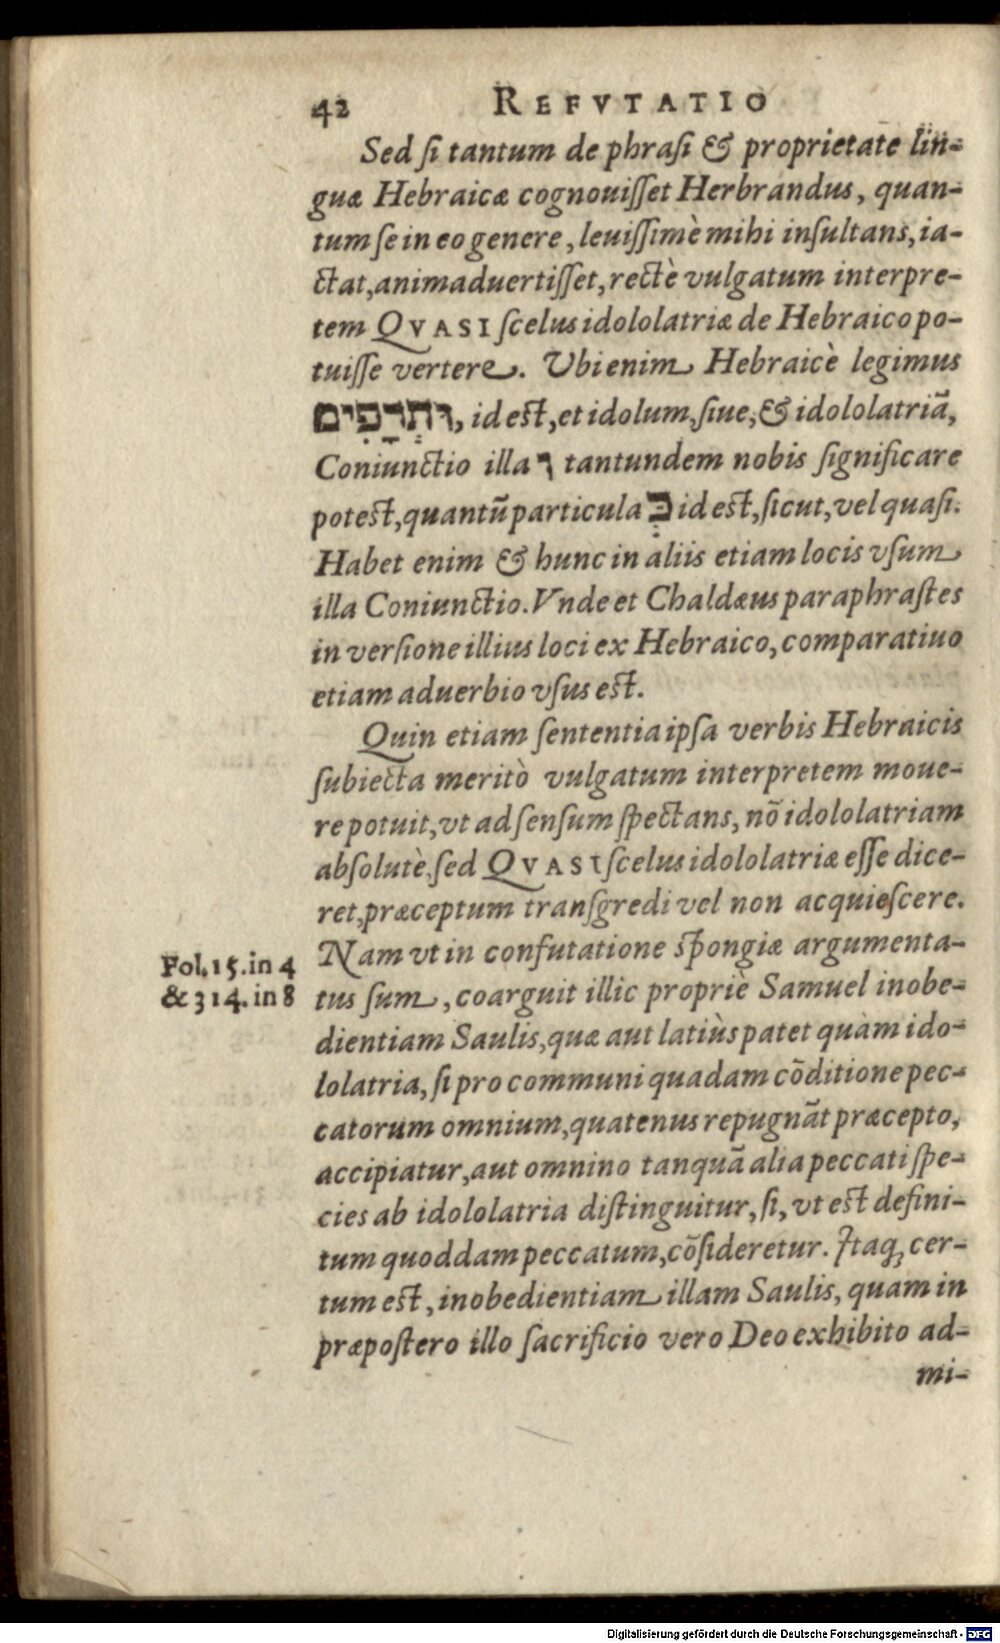 42 REFVTATIO
Sed ſi tantum de phraſi & proprietate lin-
guæ Hebraicæ cognouiſſet Herbrandus, quan-
tum ſe in eo genere, leuiſſimè mihi inſultans, ia-
ctat, animaduertiſſet, rectè vulgatum interpre-
tem QVASI ſcelus idololatriæ de Hebraico po-
tuiſſe vertere. Vbi enim Hebraicè legimus
וּתְרָפִים, id est, et idolum, ſiue, & idololatriā,
Coniunctio illa ו tantundem nobis ſignificare
potest, quantū particula כְּ id est, ſicut, vel quaſi.
Habet enim & hunc in aliis etiam locis vſum
illa Coniunctio. Vnde et Chaldæus paraphraſtes
in verſione illius loci ex Hebraico, comparatiuo
etiam aduerbio vſus est.
Quin etiam ſententia ipſa verbis Hebraicis
ſubiecta meritò vulgatum interpretem moue-
re potuit, vt ad ſenſum ſpectans, nō idololatriam
abſolutè, ſed QVASI ſcelus idololatriæ eſſe dice-
ret, præceptum tranſgredi vel non acquieſcere.
Nam vt in confutatione ſpongiæ argumenta-
Fol. 15. in 4
& 314. in 8
tus ſum, coarguit illic propriè Samuel inobe-
dientiam Saulis, quæ aut latiùs patet quàm ido-
lolatria, ſi pro communi quadam cōditione pec-
catorum omnium, quatenus repugnāt præcepto,
accipiatur, aut omnino tanquā alia peccati ſpe-
cies ab idololatria diſtinguitur, ſi, vt est defini-
tum quoddam peccatum, cōſideretur. Itaq; cer-
tum est, inobedientiam illam Saulis, quam in
præpoſtero illo ſacrificio vero Deo exhibito ad-
mi-
Digitalisierung gefördert durch die Deutsche Forschungsgemeinschaft - DFG